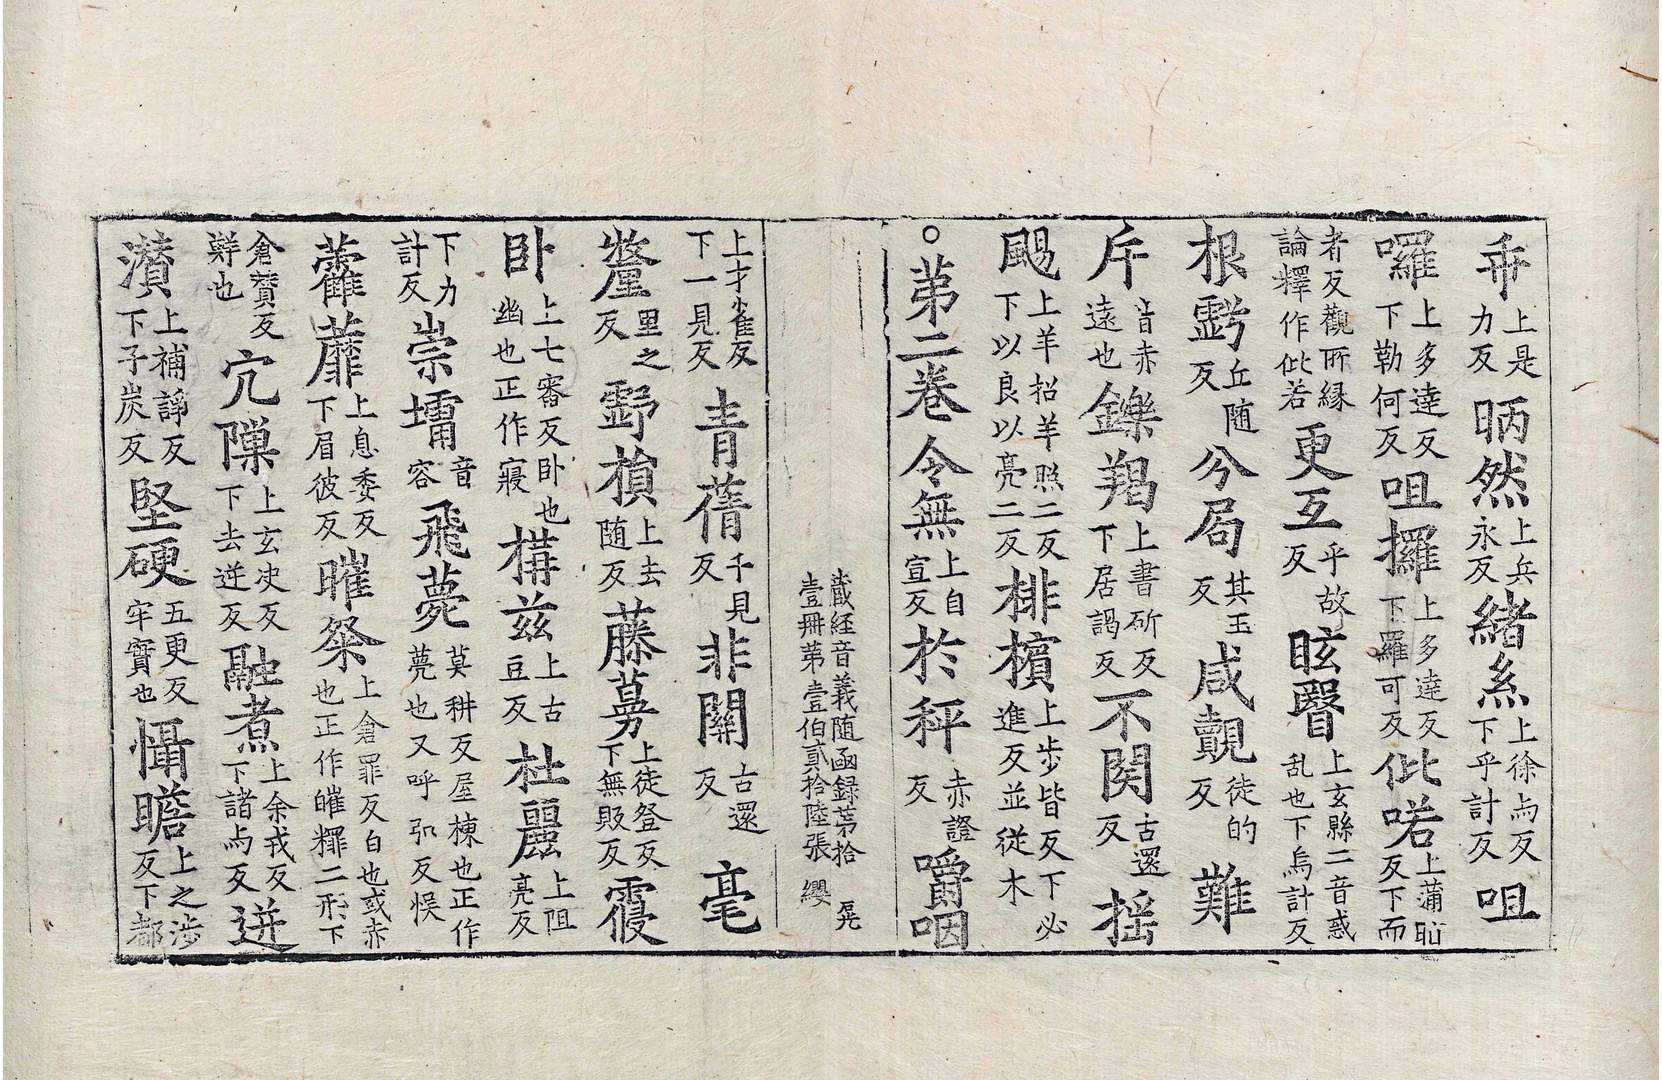 𠀻上是力反昞然上兵永反緒糸上徐与反下乎計反咀
囉上多達反下勒何反咀攞上多達反下羅可反仳喏上蒲恥反下而
者反觀所縁論釋作仳若更互乎故反眩瞖上玄縣二音惑乱也下烏計反
根虧丘随反分局其玉反咸覿徒的反難
斥音赤遠也鑠羯上書斫反下居謁反不関古還反摇
颺上羊招羊照二反下以良以亮二反排擯上步皆反下必進反並從木
○苐二卷令無上自宣反於秤赤證反嚼咽
藏経音義随函録苐拾壹冊苐壹伯貳拾陸張 纓
上才雀反下一見反青蒨千見反非關古還反毫
釐里之反虧損上去随反藤蔓上徒登反下無販反𮦷
卧上七審反卧也幽也正作寢構兹上古豆反杜麗上阻亮反
下力計反崇墉音容飛薨莫耕反屋棟也正作甍也又呼肱反悮
藿蘼上息委反下眉彼反㬠粲上倉罪反白也或赤也正作皠䊬二形下
倉賛反鮮也穴隟上玄决反下去逆反融煮上余戎反下諸与反迸
灒上補諍反下子炭反堅硬五更反牢實也懾瞻上之涉反下都